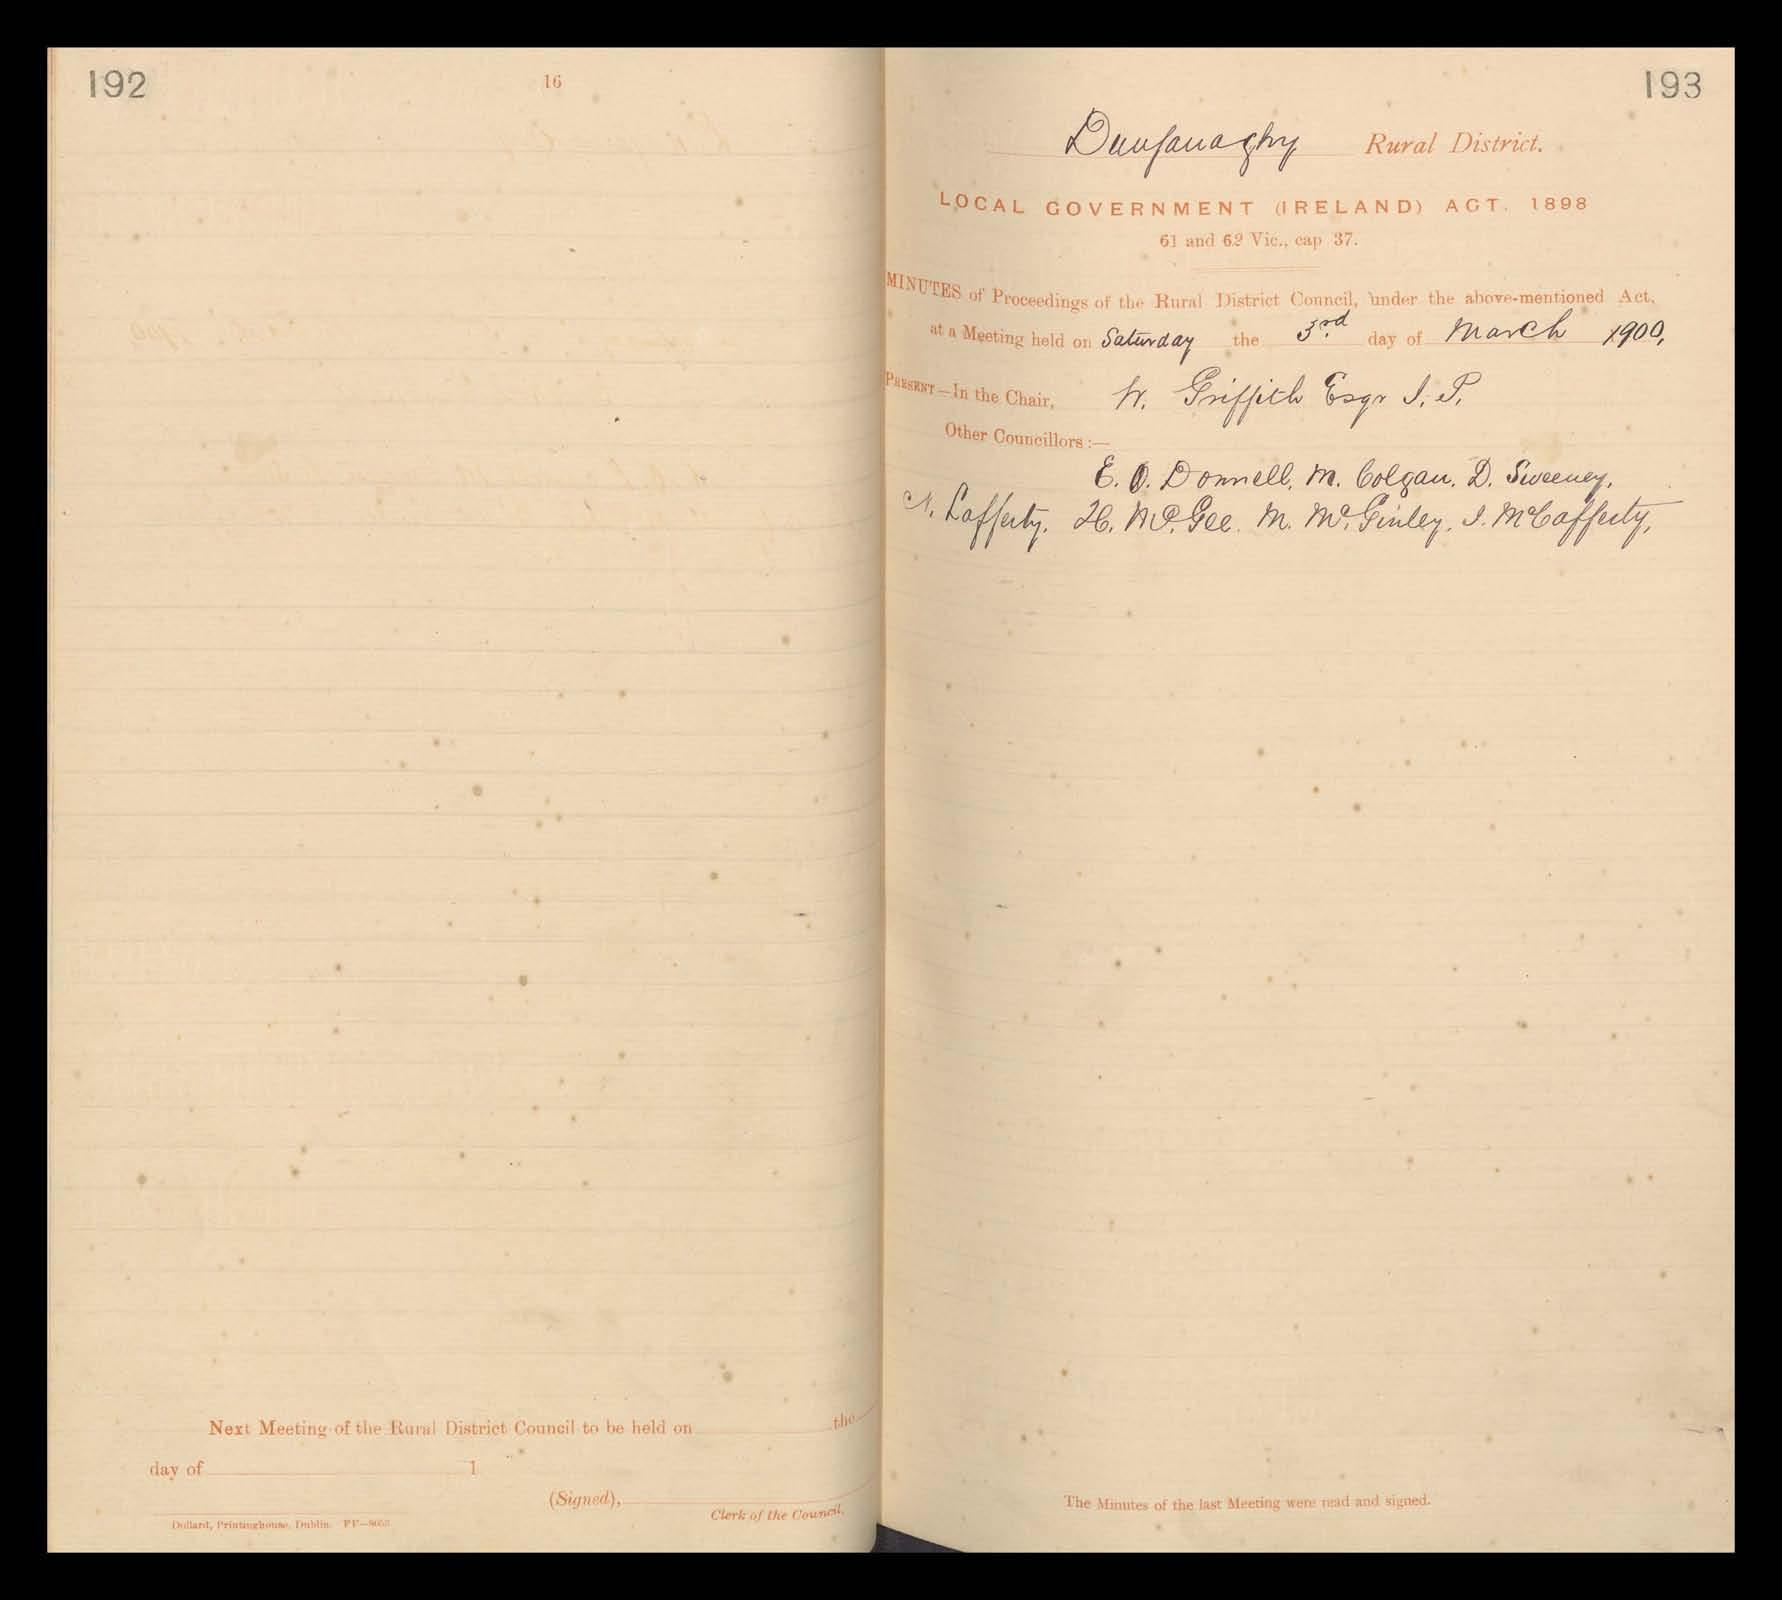 192
16
Next Meeting of the Rural District Council to be held on the
day of 1
(Signed),
Clerk of the Council.
Dollard, Printinghouse, Dublin.
193
Dunfanaghy Rural District.
LOCAL GOVERNMENT (IRELAND) ACT. 1898
61 and 62 Vic., cap 37.
MINUTES of Proceedings of the Rural District Council, under the above-mentioned Act,
at a Meeting held on Saturday the 3rd day of March 1900,
PRESENT—In the Chair, W. Griffith Esqr J. P.
Other Councillors:—
E. O. Donnell, M. Colgan, D. Sweeney,
N. Lafferty, H. McGee. M. McGinley, J. McCafferty,
The Minutes of the last Meeting were read and signed.